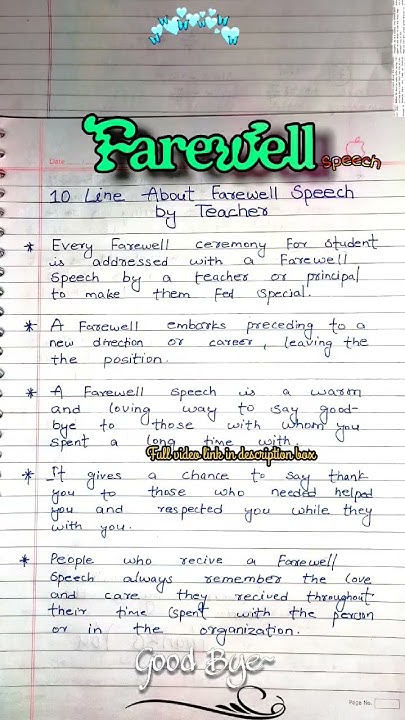 Farewell
Speech
Date
10 Line About Farewell Speech
by Teacher
* Every Farewell ceremony for student
is addressed with a Farewell
Speech by a teacher or principal
to make them Fed special.
* A Farewell embarks preceding to a
new direction or career, leaving the
the position.
* A Farewell speech is a warm
and loving way to say good-
bye to those with whom you
spent a long time with.
Full video link in description box
* It gives a chance to say thank
you to those who needed helped
you and respected you while they
with you.
* People who recive a Farewell
Speech always remember the love
and care they recived throughout
their time spent with the person
or in the organization.
Good Bye~
Page No.